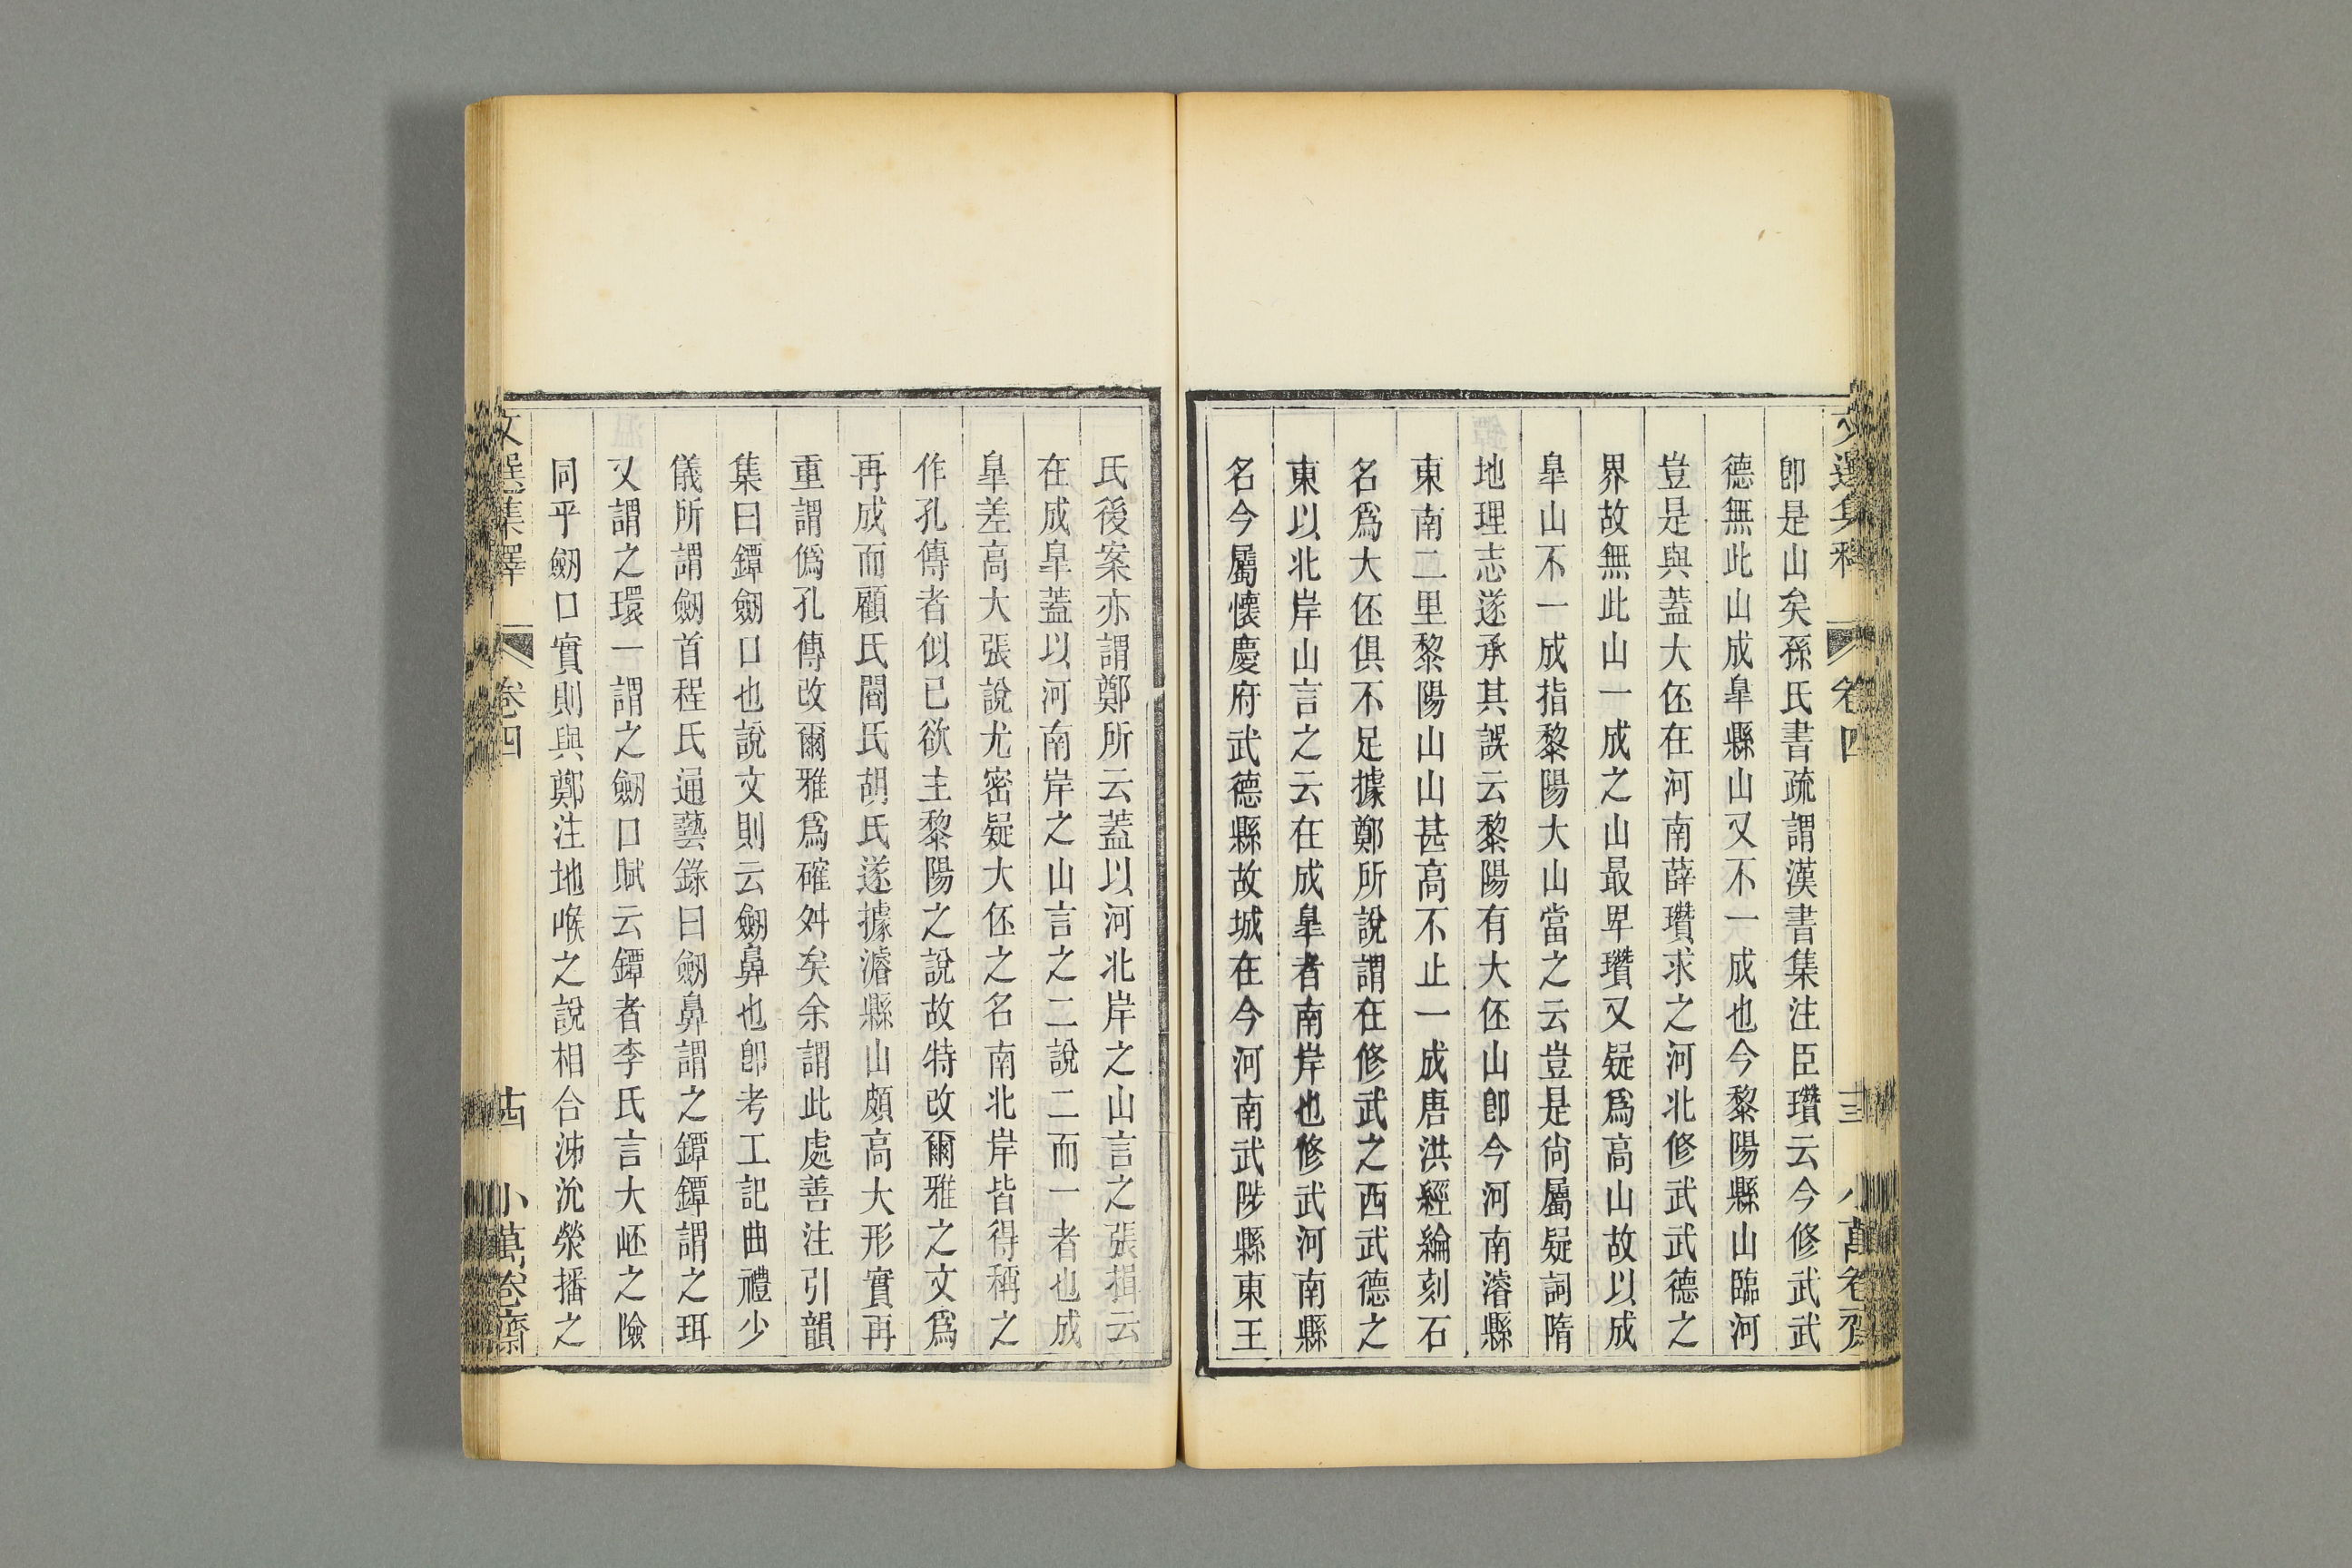 即是山矣孫氏書疏謂漢書集注臣瓚云今修武武
德無此山成臯縣山又不一成也今黎陽縣山臨河
豈是與蓋大伾在河南薛瓚求之河北修武武德之
界故無此山一成之山最卑瓚又疑爲高山故以成
臯山不一成指黎陽大山當之云豈是尙屬疑詞隋
地理志遂承其誤云黎陽有大伾山即今河南濬縣
東南二里黎陽山山甚高不止一成唐洪經綸刻石
名爲大伾俱不足據鄭所說謂在修武之西武德之
東以北岸山言之云在成臯者南岸也修武河南縣
名今屬懷慶府武德縣故城在今河南武陟縣東王
氏後案亦謂鄭所云蓋以河北岸之山言之張揖云
在成臯蓋以河南岸之山言之二說二而一者也成
臯差高大張說尤密疑大伾之名南北岸皆得稱之
作孔傳者似已欲主黎陽之說故特改爾雅之文爲
再成而顧氏閻氏胡氏遂據濬縣山頗高大形實再
重謂僞孔傳改爾雅爲確舛矣余謂此處善注引韻
集曰鐔劒口也說文則云劒鼻也即考工記曲禮少
儀所謂劒首程氏通藝錄曰劒鼻謂之鐔鐔謂之珥
又謂之環一謂之劒口賦云鐔者李氏言大岯之險
同乎劒口實則與鄭注地喉之說相合泲沇滎播之
文選集釋 卷四 十四 小萬卷齋